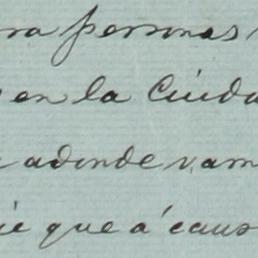 ra personas
en la Ciuda
adonde vam
ié que á caus